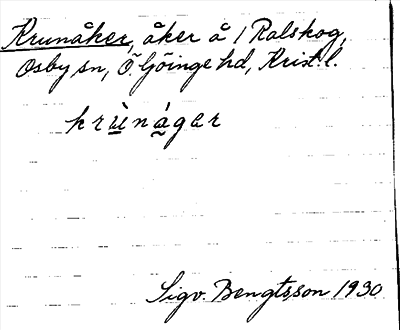 Krunåker, åker å 1 Ralskog,
Osby sn, Ö. Göinge hd, Krist. l.
krùnágar
Sigv. Bengtsson 1930